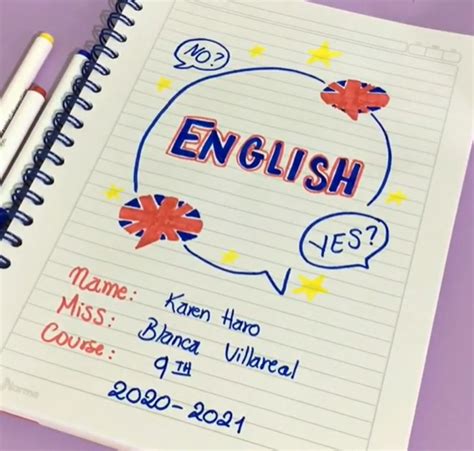 NO?
ENGLISH
YES?
Name: Karen Haro
Miss: Blanca Villareal
Course: 9TH
2020-2021
Norma